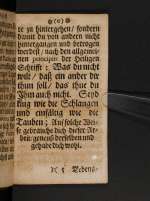 (o)
re zu hintergehen / sondern
damit du von andern nicht
hintergangen und betrogen
werdest / nach den allgemei-
nen principiis der Heiligen
Schrifft: Was du nicht
wilt / daß ein ander dir
thun soll / das thue du
ihm auch nicht. Seyd
klug wie die Schlangen
und einfältig wie die
Tauben; Auf solche Wei-
se gebrauche dich dieser Ar-
beit / geneuß derselben und
gehabe dich wohl.